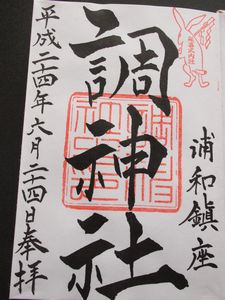 浦和鎮座
調神社
平成二十四年六月二十四日奉拝